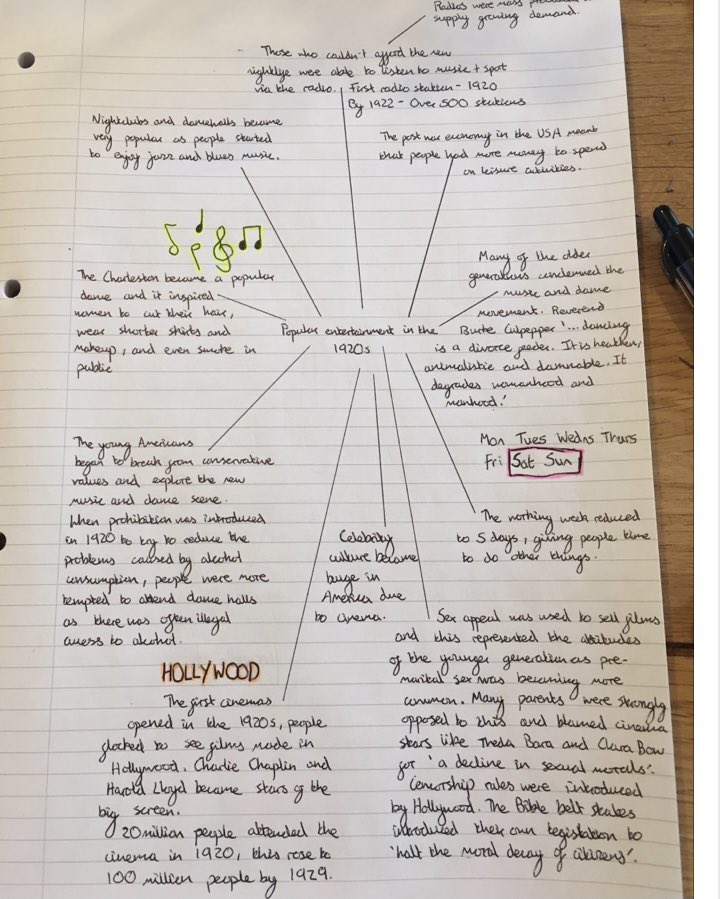 Radios were mass
supply growing demand.
Those who couldn't afford the new
nightlife were able to listen to music + spot
via the radio. First radio station - 1920
By 1922 - Over 500 stations
Nightclubs and dancehalls became
very popular as people started
to enjoy jazz and blues music.
The post war economy in the USA meant
that people had more money to spend
on leisure activities.
The Charleston became a popular
dance and it inspired
women to cut their hair,
wear shorter skirts and
makeup, and even smoke in
public
Many of the older
generations condemned the
music and dance
movement. Reverend
Burke Culpepper '...dancing
is a divorce feeder. It is heathen,
animalistic and damnable. It
degrades womanhood and
manhood.'
Popular entertainment in the
1920s
Mon Tues Wedns Thurs
Fri Sat Sun
The working week reduced
to 5 days, giving people time
to do other things.
The young Americans
began to break from conservative
values and explore the new
music and dance scene.
When prohibition was introduced
in 1920 to try to reduce the
problems caused by alcohol
consumption, people were more
tempted to attend dance halls
as there was often illegal
access to alcohol.
Celebrity
culture became
huge in
America due
to cinema.
Sex appeal was used to sell films
and this represented the attitudes
of the younger generation as pre-
marital sex was becoming more
common. Many parents were strongly
opposed to this and blamed cinema
stars like Theda Bara and Clara Bow
for 'a decline in sexual morals'.
Censorship rules were introduced
by Hollywood. The Bible belt states
introduced their own legislation to
'halt the moral decay of citizens'.
HOLLYWOOD
The first cinemas
opened in the 1920s, people
flocked to see films made in
Hollywood. Charlie Chaplin and
Harold Lloyd became stars of the
big screen.
20 million people attended the
cinema in 1920, this rose to
100 million people by 1929.